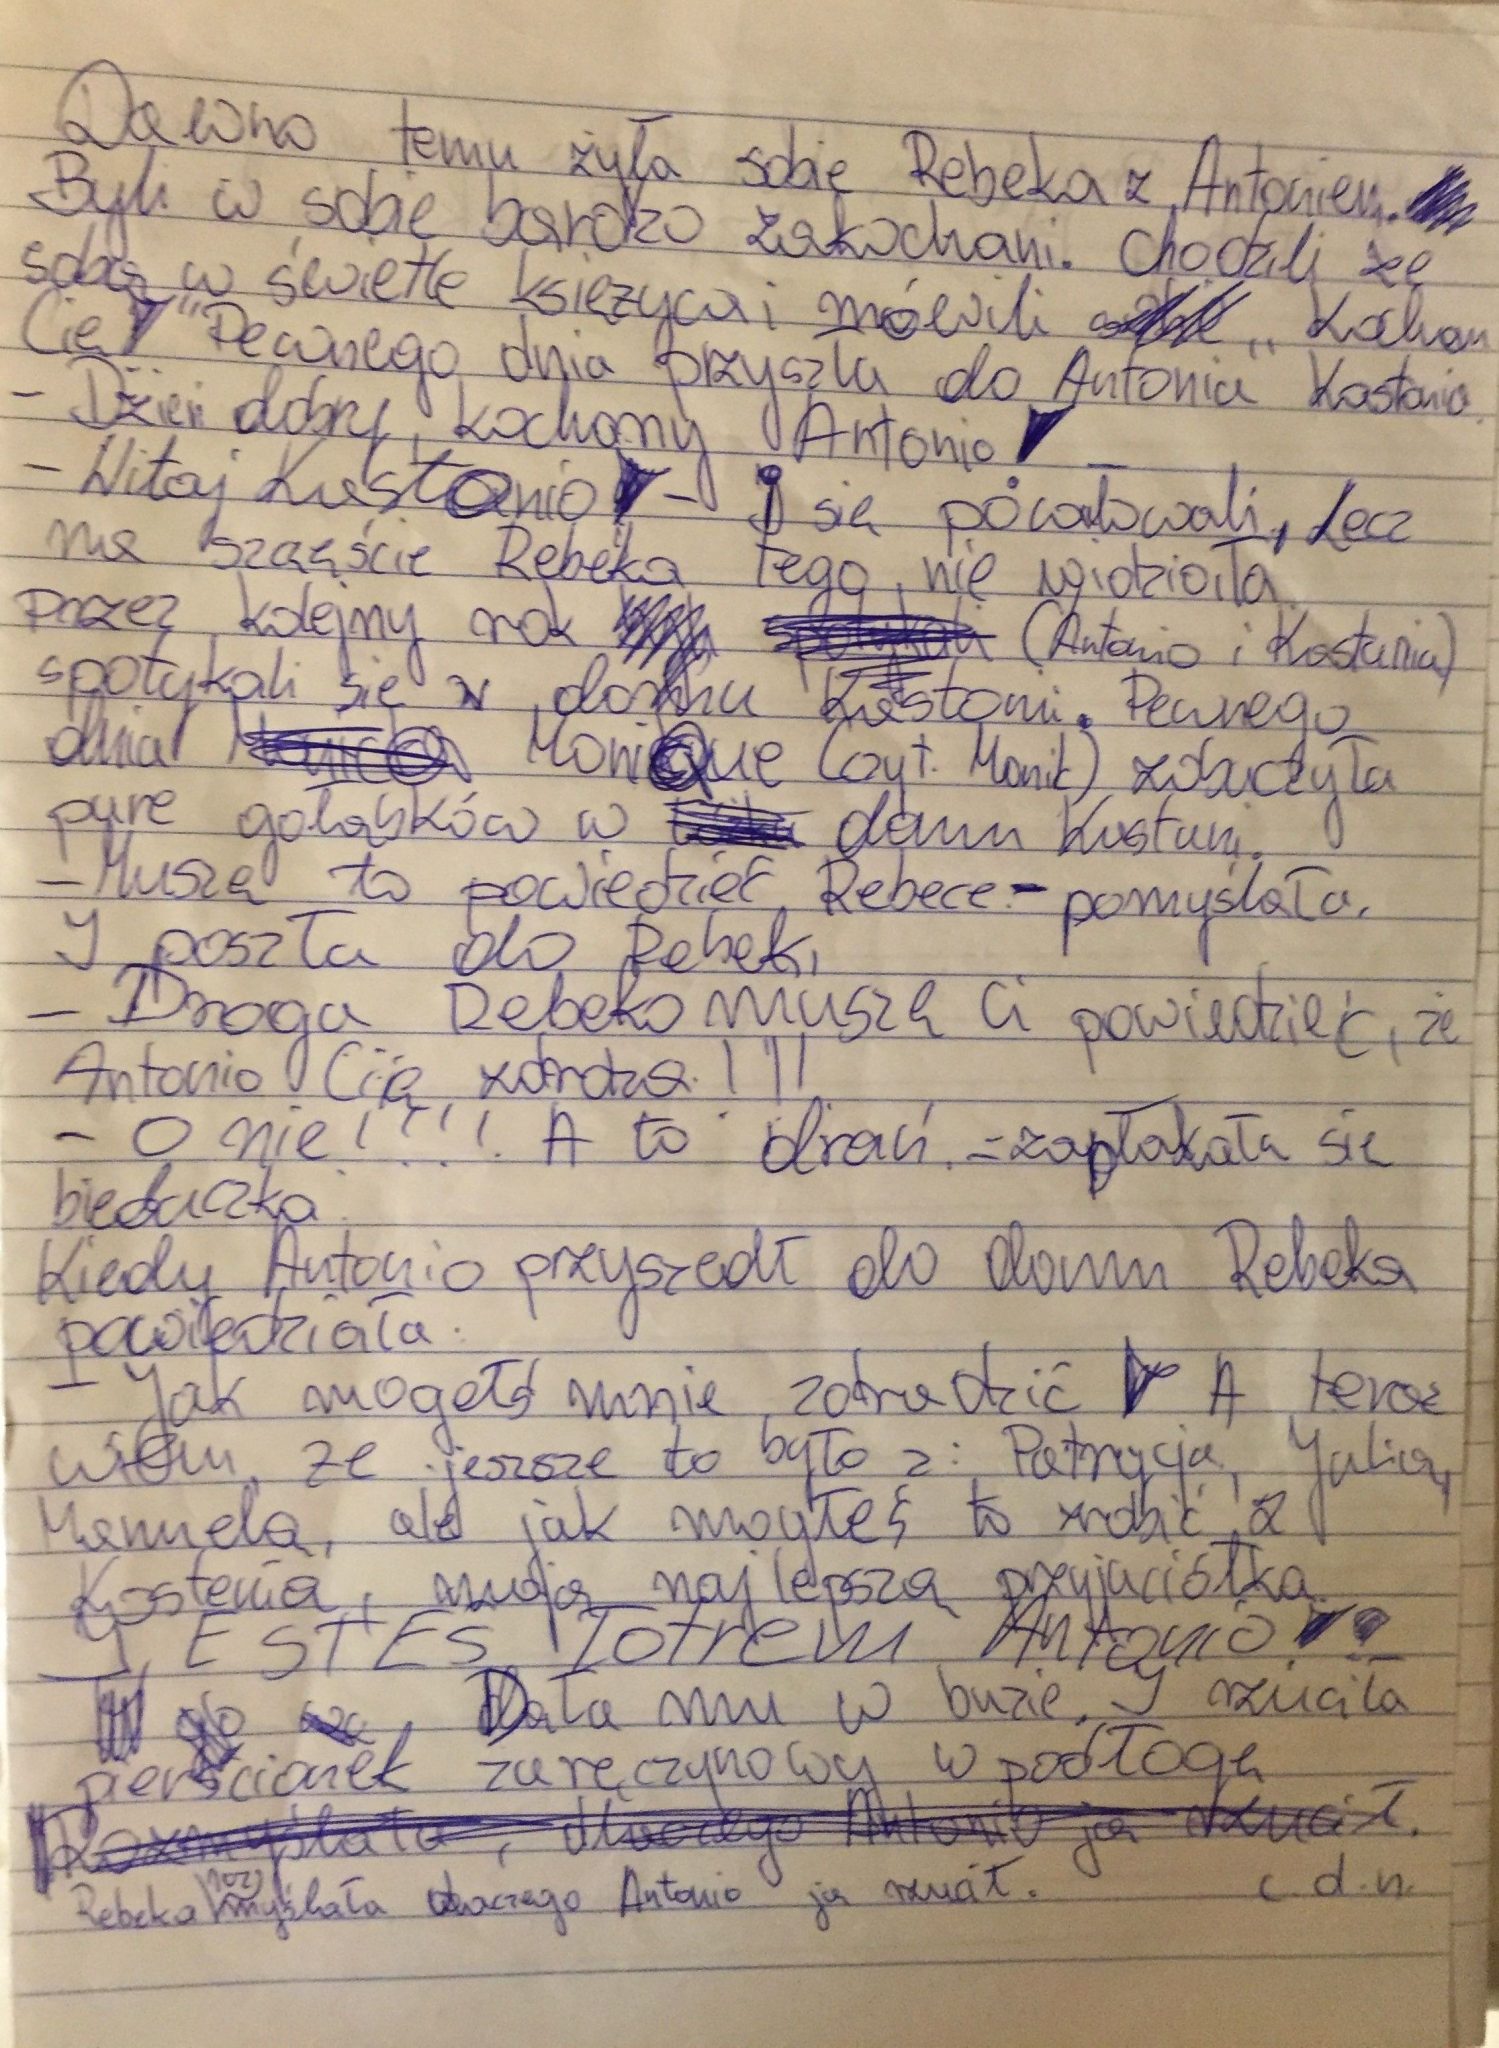 Dawno temu żyła sobie Rebeka z Antoniem.
Byli w sobie bardzo zakochani. Chodzili ze
sobą w świetle księżyca i mówili „Kocham
Cię!" Pewnego dnia przyszła do Antonia Kastania.
- Dzień dobry, kochany Antonio!
- Witaj Kastanio! - I się pocałowali, Lecz
na szczęście Rebeka tego nie widziała.
przez kolejny rok (Antonio i Kastania)
spotykali się w domku Kastani. Pewnego
dnia Monique (czyt. Monik) zobaczyła
parę gołąbków w domu Kastani.
- Muszę to powiedzieć Rebece - pomyślała.
I poszła do Rebeki
- Droga Rebeko muszę Ci powiedzieć, że
Antonio Cię zdradza!!!
- O nie!!!! A to drań. - zapłakała się
biedaczka.
Kiedy Antonio przyszedł do domu Rebeka
powiedziała:
- Jak mogełś mnie zdradzić! A teraz
wiem, ze jeszsze to było z: Patrycją, Julią,
Manuelą, ale jak mogłeś to zrobić z
Kastenią, moją najlepszą przyjaciółką
JESTEŚ łotrem Antonio!
Dała mu w buzie. I rzuciła
pierścionek zaręczynowy w podłogę
Rozmyślała, dlaczego Antonio ją rzucił.
Rebeka rozmyślała dlaczego Antonio ją rzucił. c.d.n.